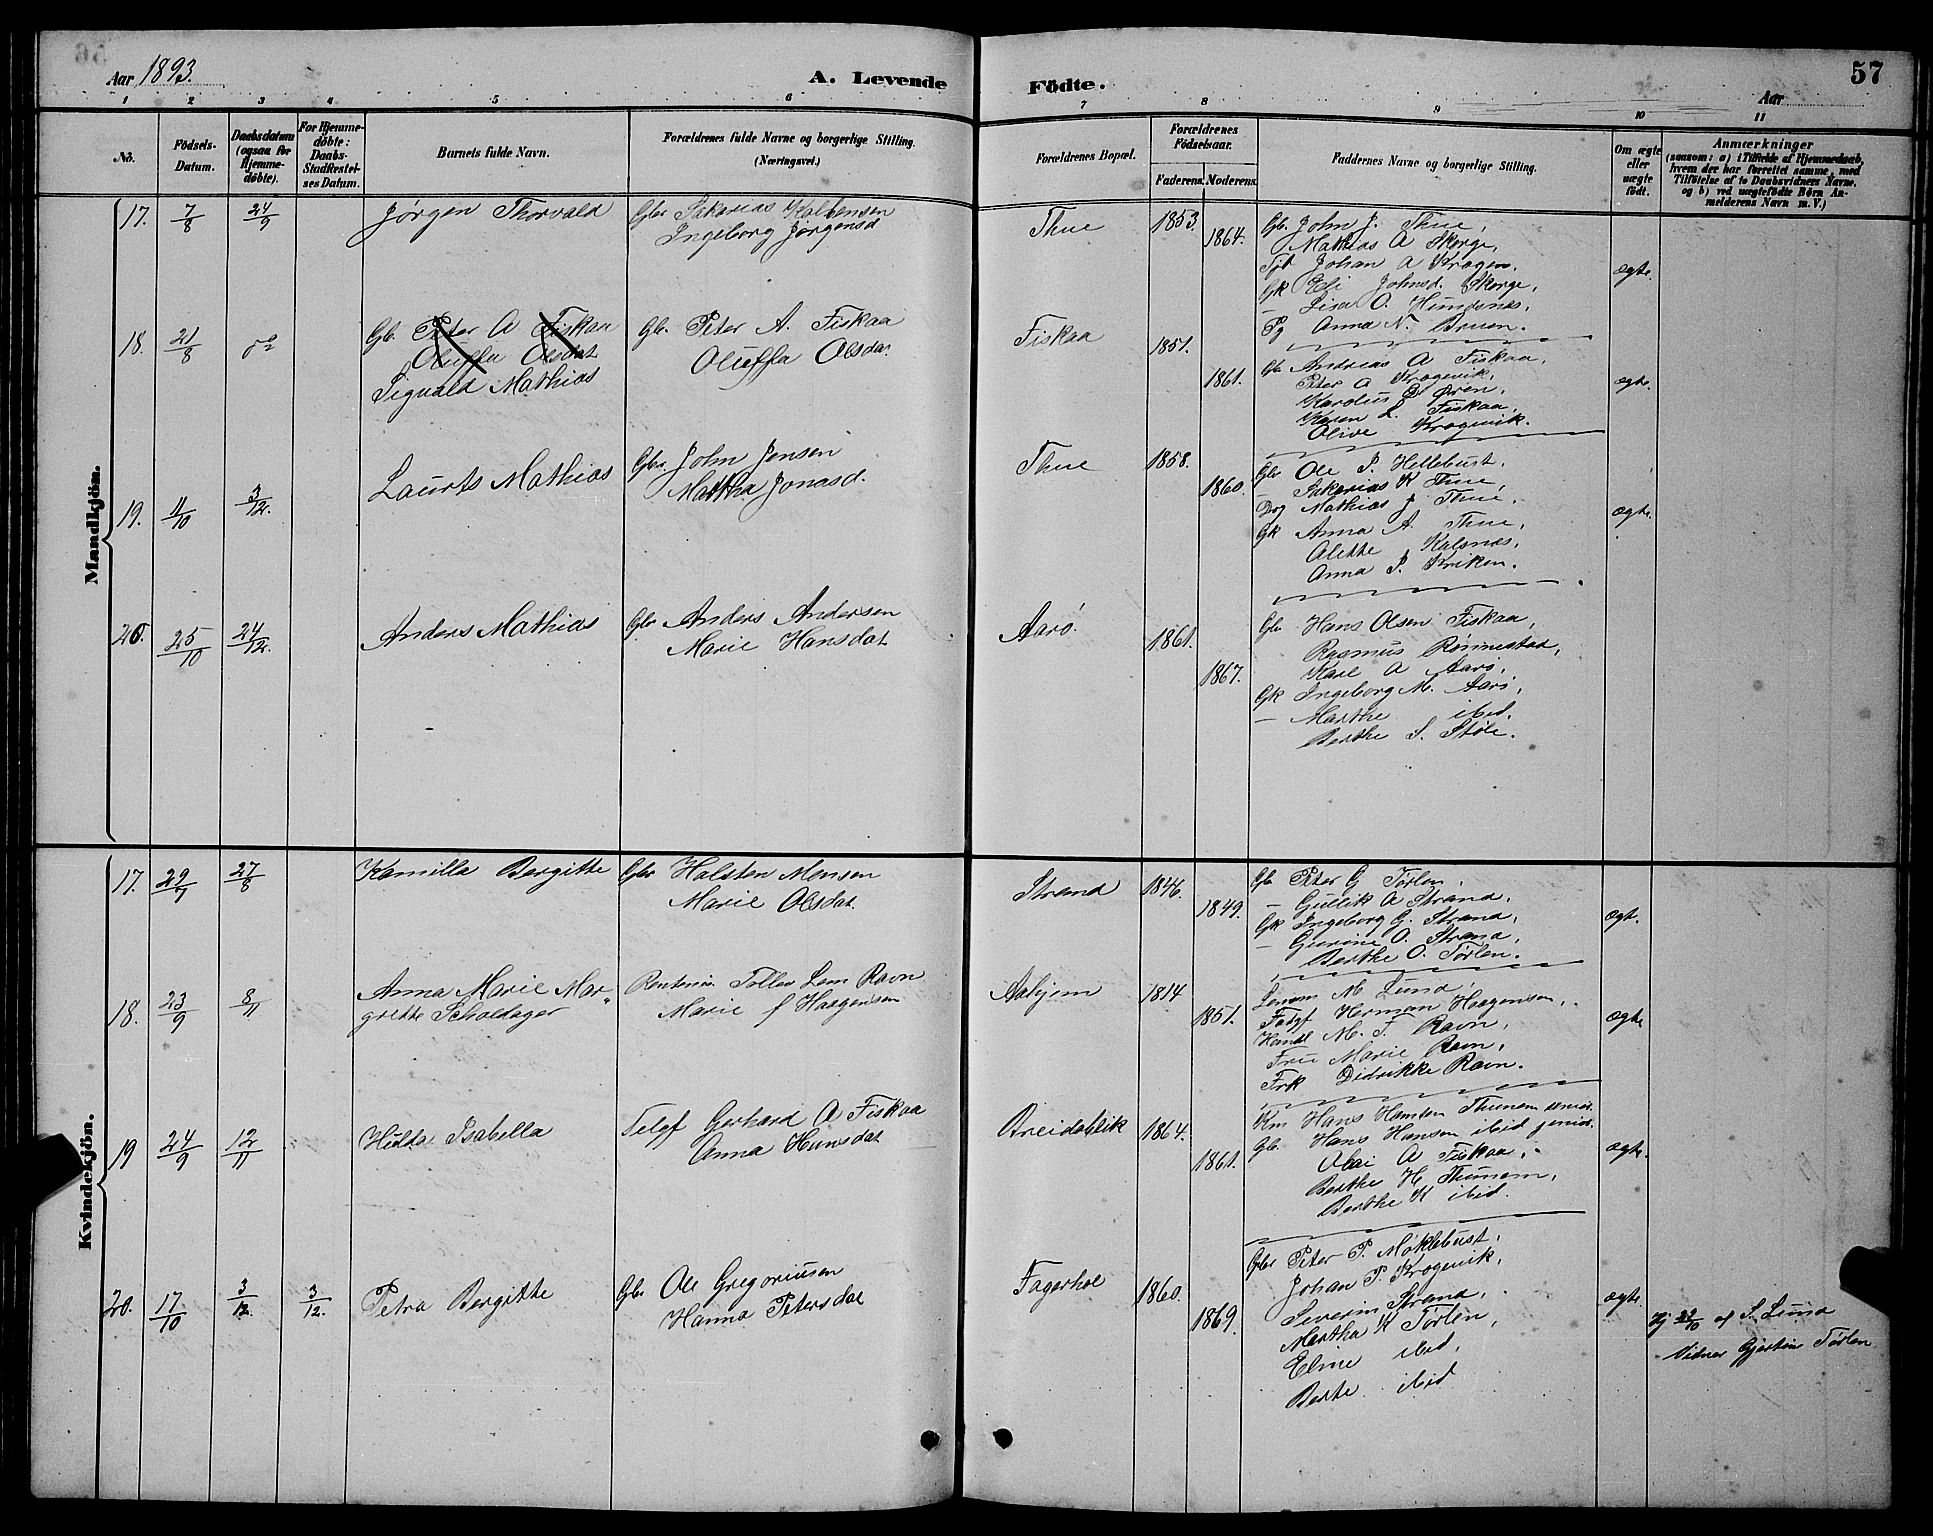 Aar 1893.
A. Levende
Födte.
57
Aar
1 2 3 4 5 6 7 8 9 10 11
No.
Födsels-
Datum.
Daabsdatum
(ogsaa for
Hjemme-
döbte).
For Hjemme-
döbte:
Daabs-
Stadfæstel-
ses Datum.
Barnets fulde Navn.
Forældrenes fulde Navne og borgerlige Stilling.
(Næringsvei.)
Forældrenes Bopæl.
Forældrenes
Födselsaar.
Faderens. Moderens.
Faddernes Navne og borgerlige Stilling.
Om ægte
eller
uægte
födt.
Anmærkninger
(saasom: a) i Tilfælde af Hjemmedaab,
hvem der har forrettet samme, med
Tilföielse af to Daabsvidners Navne.
og b) ved uægtefödte Börn An-
melderens Navn m. V.)
Mandkjön.
17. 7/8 24/9 Jørgen Thorvald
Gbr Sakarias Kolbensen
Ingeborg Jørgensd
Thue 1853. 1864.
Gb. John J. Thue,
Mathias A Skorge,
Tjt Johan A Krogen,
Gk Eli Johnsd. Skorge,
– Lisa O. Hundsnes,
Pg Anna N. Bruen.
ægte.
18. 21/8 do
Gb. Peter A Fiskaa
Oluffa Olsdat
Sigvald Mathias
Gb. Peter A. Fiskaa
Oluffa Olsdat.
Fiskaa 1851. 1861.
Gb Andreas A Fiskaa,
Peter A Krogevik,
Karolus P Øren,
Karen L. Fiskaa,
Olive Krogevik.
ægte.
19. 11/10 3/12. Laurts Mathias
Gbr. John Jensen
Martha Jonasd.
Thue 1858. 1860.
Gbr Ole P. Hellebust,
– Sakarias K Thue,
Drg Mathias J Thue.
Gk Anna A. Thue,
Alette Kalsnas,
Anna P. Kriken.
ægte.
20. 25/10 24/12. Anders Mathias
Gbr Anders Andersen
Marie Hansdat
Aarø. 1861. 1867.
Gb. Hans Olsen Fiskaa,
Rasmus Rønnestad,
Karl A Aarø,
Gk Ingeborg M. Aarø,
– Marthe ibid.
Berthe S. Støle.
Kvindekjön.
17. 29/7 27/8 Kamilla Bergitte
Gbr Halsten Monsen
Marie Olsdat.
Strand 1846. 1849.
Gb. Peter G Tørlen,
– Gullik A Strand,
Gk Ingeborg G. Strand,
– Gurine O. Strand,
Berthe O. Tørlen.
ægt.
18. 23/9 8/11 Anna Marie Mar-
grethe Scholdager
Rentenir Tolles Lem Ravn
Marie f Haagensen
Aahjem 1814 1851.
Lensm M Lund,
Fuldgf Herman Haagensen,
Handl M. F. Ravn,
Fru Marie Ravn,
Frk Didrikke Ravn.
ægte
19 24/9 12/11 Hilda Isabella
Telgf Gerhard A Fiskaa
Anna Hansdat
Breidablik 1864. 1861.
Km Hans Hansen Thunem senior.
Gb. Hans Hansen ibid junior.
Olai A Fiskaa,
Berthe H. Thunem,
Berthe K ibid.
ægte.
20. 17/10 3/12. 3/12. Petra Bergitte
Gbr Ole Gregoriusen
Hanna Petersdat
Fagerhol 1860. 1869.
Gbr Peter P. Møklebust,
Johan P. Krogevik,
Severin Strand,
Martha K Tørlen,
Eline ibid,
Berte ibid
ægte.
Hj 22/10 af S. Lund
Vidner Gjertine Tørlen